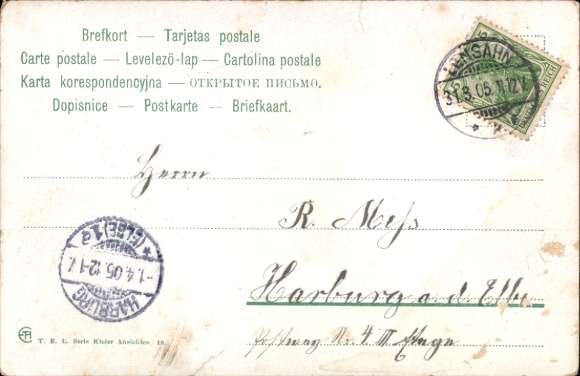 Brefkort — Tarjetas postale
Carte postale — Levelezö-lap — Cartolina postale
Karta korespondencyjna — ОТКРЫТОЕ ПИСЬМО.
Dopisnice — Postkarte — Briefkaart.
LENSAHN
31.3.05.11-12V.
Herrn
R. Mess
HARBURG
(ELBE) 1a
-1.4.05.12-1
Harburg a. d. Elbe
Nr. 4 III Etage
T. E. L. Serie Kieler Ansichten